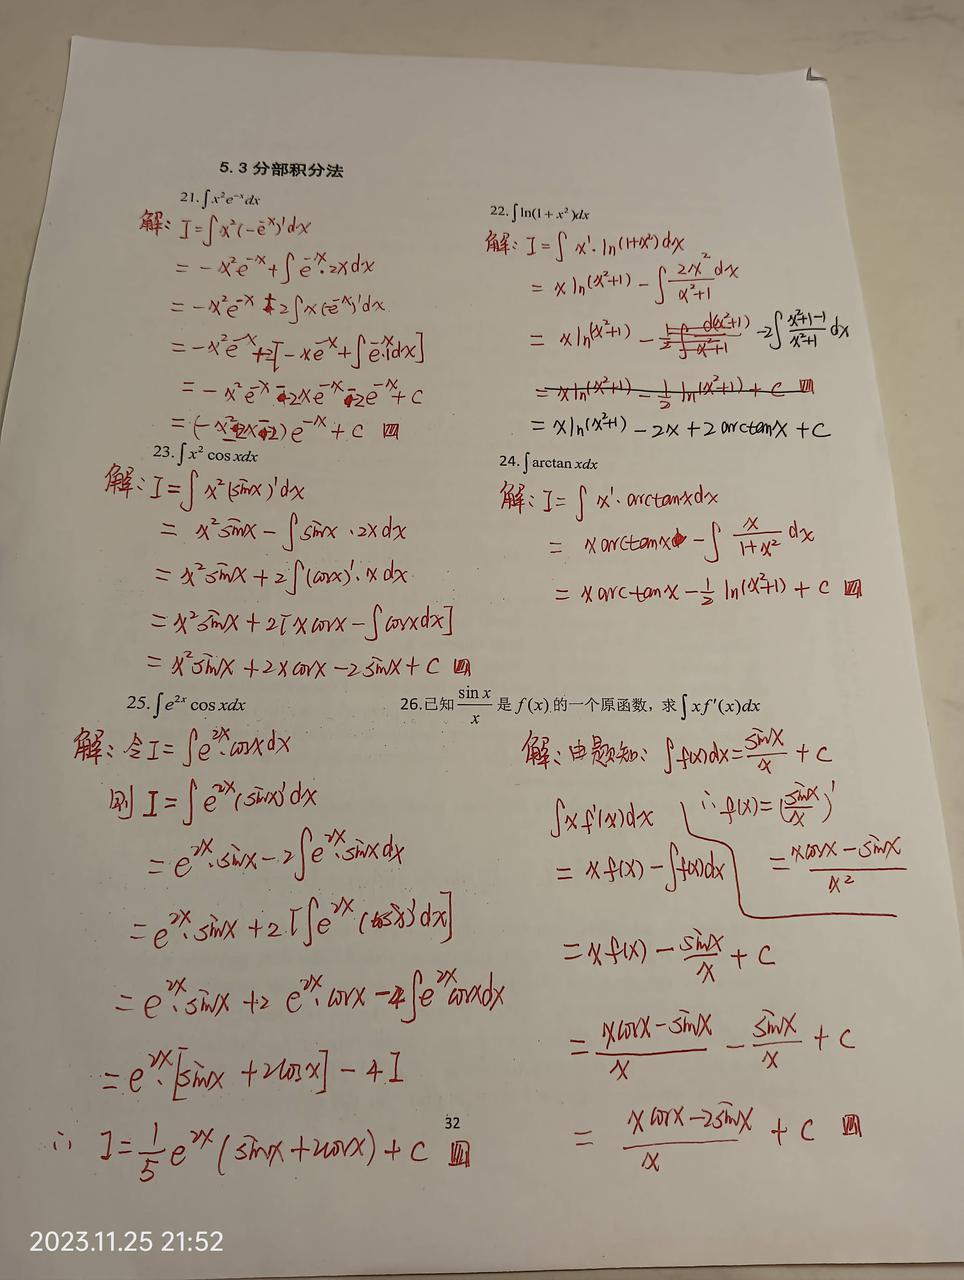 5.3 分部积分法
21. ∫x²e⁻ˣdx
解: I=∫x²(-e⁻ˣ)'dx
= -x²e⁻ˣ+∫e⁻ˣ·2xdx
= -x²e⁻ˣ -2∫x(e⁻ˣ)'dx
= -x²e⁻ˣ+2[-xe⁻ˣ+∫e⁻ˣ·1dx]
= -x²e⁻ˣ-2xe⁻ˣ-2e⁻ˣ+C
= (-x²-2x-2)e⁻ˣ+C
22. ∫ln(1+x²)dx
解: I=∫x'·ln(1+x²)dx
= xln(x²+1) - ∫2x²/(x²+1)dx
= xln(x²+1) - 1/2∫d(x²+1)/(x²+1) -2∫(x²+1-1)/(x²+1)dx
= xln(x²+1) - 1/2 ln(x²+1)+C
= xln(x²+1) - 2x+2arctanx+C
23. ∫x²cosxdx
解: I=∫x²(sinx)'dx
= x²sinx-∫sinx·2xdx
= x²sinx+2∫(cosx)'·xdx
= x²sinx+2[xcosx-∫cosxdx]
= x²sinx+2xcosx-2sinx+C
24. ∫arctanxdx
解: I=∫x'·arctanxdx
= xarctanx-∫x/(1+x²)dx
= xarctanx-1/2 ln(x²+1)+C
25. ∫e²ˣcosxdx
解: 令I=∫e²ˣ·cosxdx
则 I=∫e²ˣ(sinx)'dx
= e²ˣ·sinx-2∫e²ˣ·sinxdx
= e²ˣ·sinx+2[∫e²ˣ(cosx)'dx]
= e²ˣ·sinx+2e²ˣ·cosx-4∫e²ˣcosxdx
= e²ˣ·[sinx+2cosx]-4I
∴ I=1/5 e²ˣ(sinx+2cosx)+C
26.已知 sinx/x 是 f(x) 的一个原函数，求 ∫xf'(x)dx
解: 由题知: ∫f(x)dx=sinx/x+C
∴ f(x)=(sinx/x)'
= (xcosx-sinx)/x²
∫xf'(x)dx
= xf(x)-∫f(x)dx
= xf(x)-sinx/x+C
= (xcosx-sinx)/x - sinx/x+C
= (xcosx-2sinx)/x+C
32
2023.11.25 21:52